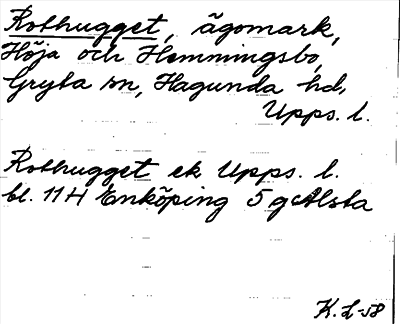 Rothugget, ägomark,
Höja och Hemmingsbo,
Gryta sn, Hagunda hd,
Upps. l.
Rothugget ek Upps. l.
bl. 11H Enköping 5g Alsta
K. L-58